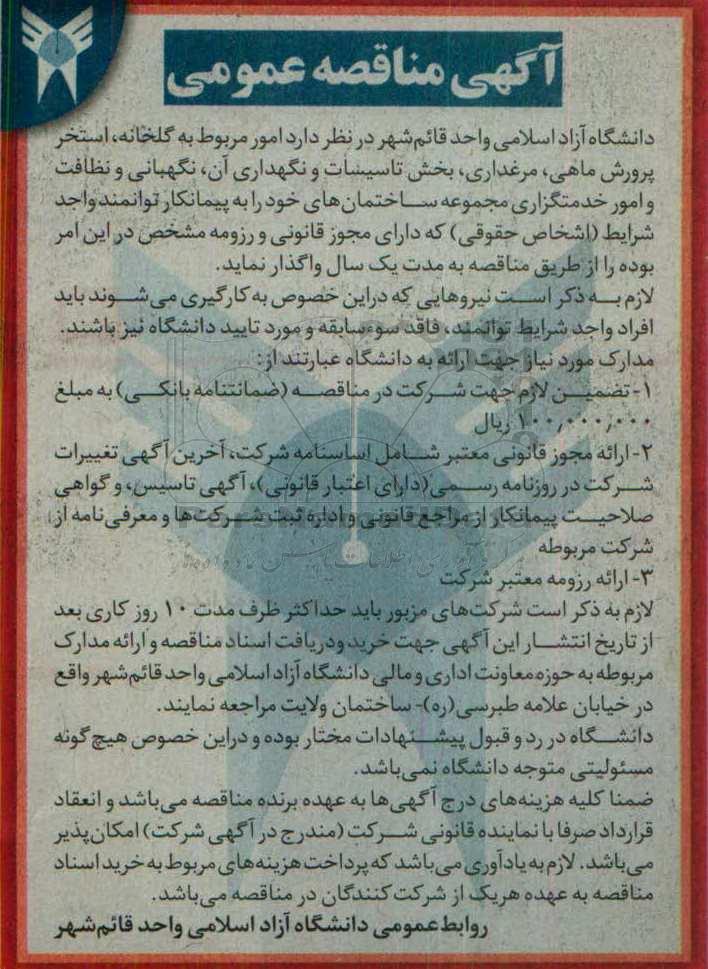 آگهی مناقصه عمومی
دانشگاه آزاد اسلامی واحد قائم‌شهر در نظر دارد امور مربوط به گلخانه، استخر
پرورش ماهی، مرغداری، بخش تاسیسات و نگهداری آن، نگهبانی و نظافت
و امور خدمتگزاری مجموعه ساختمان‌های خود را به پیمانکار توانمند واجد
شرایط (اشخاص حقوقی) که دارای مجوز قانونی و رزومه مشخص در این امر
بوده را از طریق مناقصه به مدت یک سال واگذار نماید.
لازم به ذکر است نیروهایی که دراین خصوص به کارگیری می‌شوند باید
افراد واجد شرایط توانمند، فاقد سوء سابقه و مورد تایید دانشگاه نیز باشند.
مدارک مورد نیاز جهت ارائه به دانشگاه عبارتند از:
۱- تضمین لازم جهت شرکت در مناقصه (ضمانتنامه بانکی) به مبلغ
۱۰۰,۰۰۰,۰۰۰ ریال
۲- ارائه مجوز قانونی معتبر شامل اساسنامه شرکت، آخرین آگهی تغییرات
شرکت در روزنامه رسمی (دارای اعتبار قانونی)، آگهی تاسیس، و گواهی
صلاحیت پیمانکار از مراجع قانونی و اداره ثبت شرکت‌ها و معرفی‌نامه از
شرکت مربوطه
۳- ارائه رزومه معتبر شرکت
لازم به ذکر است شرکت‌های مزبور باید حداکثر ظرف مدت ۱۰ روز کاری بعد
از تاریخ انتشار این آگهی جهت خرید ودریافت اسناد مناقصه و ارائه مدارک
مربوطه به حوزه معاونت اداری و مالی دانشگاه آزاد اسلامی واحد قائم‌شهر واقع
در خیابان علامه طبرسی (ره)- ساختمان ولایت مراجعه نمایند.
دانشگاه در رد و قبول پیشنهادات مختار بوده و دراین خصوص هیچ گونه
مسئولیتی متوجه دانشگاه نمی‌باشد.
ضمنا کلیه هزینه‌های درج آگهی‌ها به عهده برنده مناقصه می‌باشد و انعقاد
قرارداد صرفا با نماینده قانونی شرکت (مندرج در آگهی شرکت) امکان‌پذیر
می‌باشد. لازم به یادآوری می‌باشد که پرداخت هزینه‌های مربوط به خرید اسناد
مناقصه به عهده هریک از شرکت کنندگان در مناقصه می‌باشد.
روابط عمومی دانشگاه آزاد اسلامی واحد قائم‌شهر